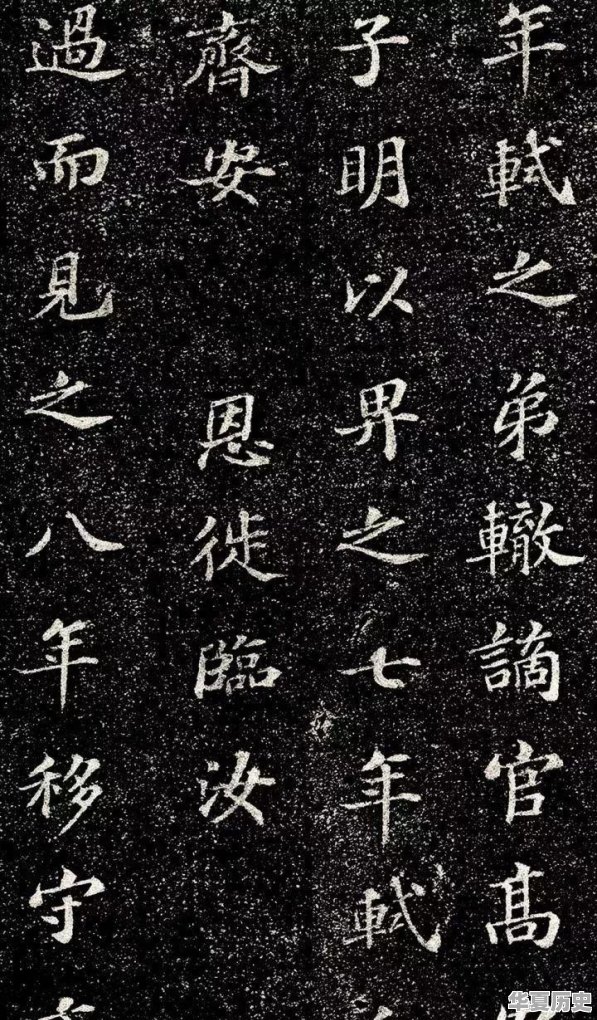 年軾之弟轍謫官髙
子明以畀之七年軾
齊安 恩徙臨汝
過而見之八年移守
华夏历史